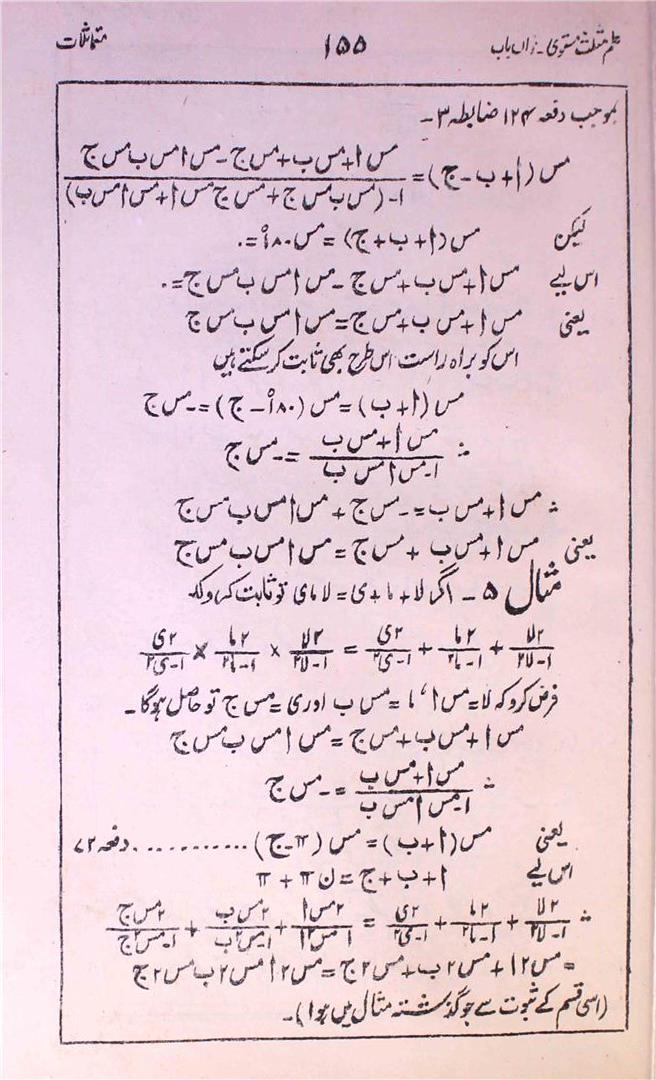 علم مثلث مستوی۔ نواں باب ۱۵۵ متماثلات
بموجب دفعہ ۱۲۴ ضابطہ ۳۔
مس (ا + ب - ج) = (مس ا + مس ب + مس ج - مس ا مس ب مس ج) / (۱ - (مس ب مس ج + مس ج مس ا + مس ا مس ب))
لیکن مس (ا + ب + ج) = مس ۱۸۰° = ۰
اس لیے مس ا + مس ب + مس ج - مس ا مس ب مس ج = ۰
یعنی مس ا + مس ب + مس ج = مس ا مس ب مس ج
اس کو براہ راست اس طرح بھی ثابت کر سکتے ہیں
مس (ا + ب) = مس (۱۸۰° - ج) = - مس ج
∴ (مس ا + مس ب) / (۱ - مس ا مس ب) = - مس ج
∴ مس ا + مس ب = - مس ج + مس ا مس ب مس ج
یعنی مس ا + مس ب + مس ج = مس ا مس ب مس ج
مثال ۵ - اگر لا + ما + ی = لا ما ی تو ثابت کرو کہ
۲لا / (۱ - لا۲) + ۲ما / (۱ - ما۲) + ۲ی / (۱ - ی۲) = ۲لا / (۱ - لا۲) × ۲ما / (۱ - ما۲) × ۲ی / (۱ - ی۲)
فرض کرو کہ لا = مس ا، ما = مس ب اور ی = مس ج تو حاصل ہوگا۔
مس ا + مس ب + مس ج = مس ا مس ب مس ج
∴ (مس ا + مس ب) / (۱ - مس ا مس ب) = - مس ج
یعنی مس (ا + ب) = مس (π - ج) ........... دفعہ ۷۲
اس لیے ا + ب + ج = ن π + π
∴ ۲لا / (۱ - لا۲) + ۲ما / (۱ - ما۲) + ۲ی / (۱ - ی۲) = ۲مس ا / (۱ - مس۲ ا) + ۲مس ب / (۱ - مس۲ ب) + ۲مس ج / (۱ - مس۲ ج)
= مس ۲ا + مس ۲ب + مس ۲ج = مس ۲ا مس ۲ب مس ۲ج
(اسی قسم کے ثبوت سے جو گذشتہ مثال میں ہوا)۔